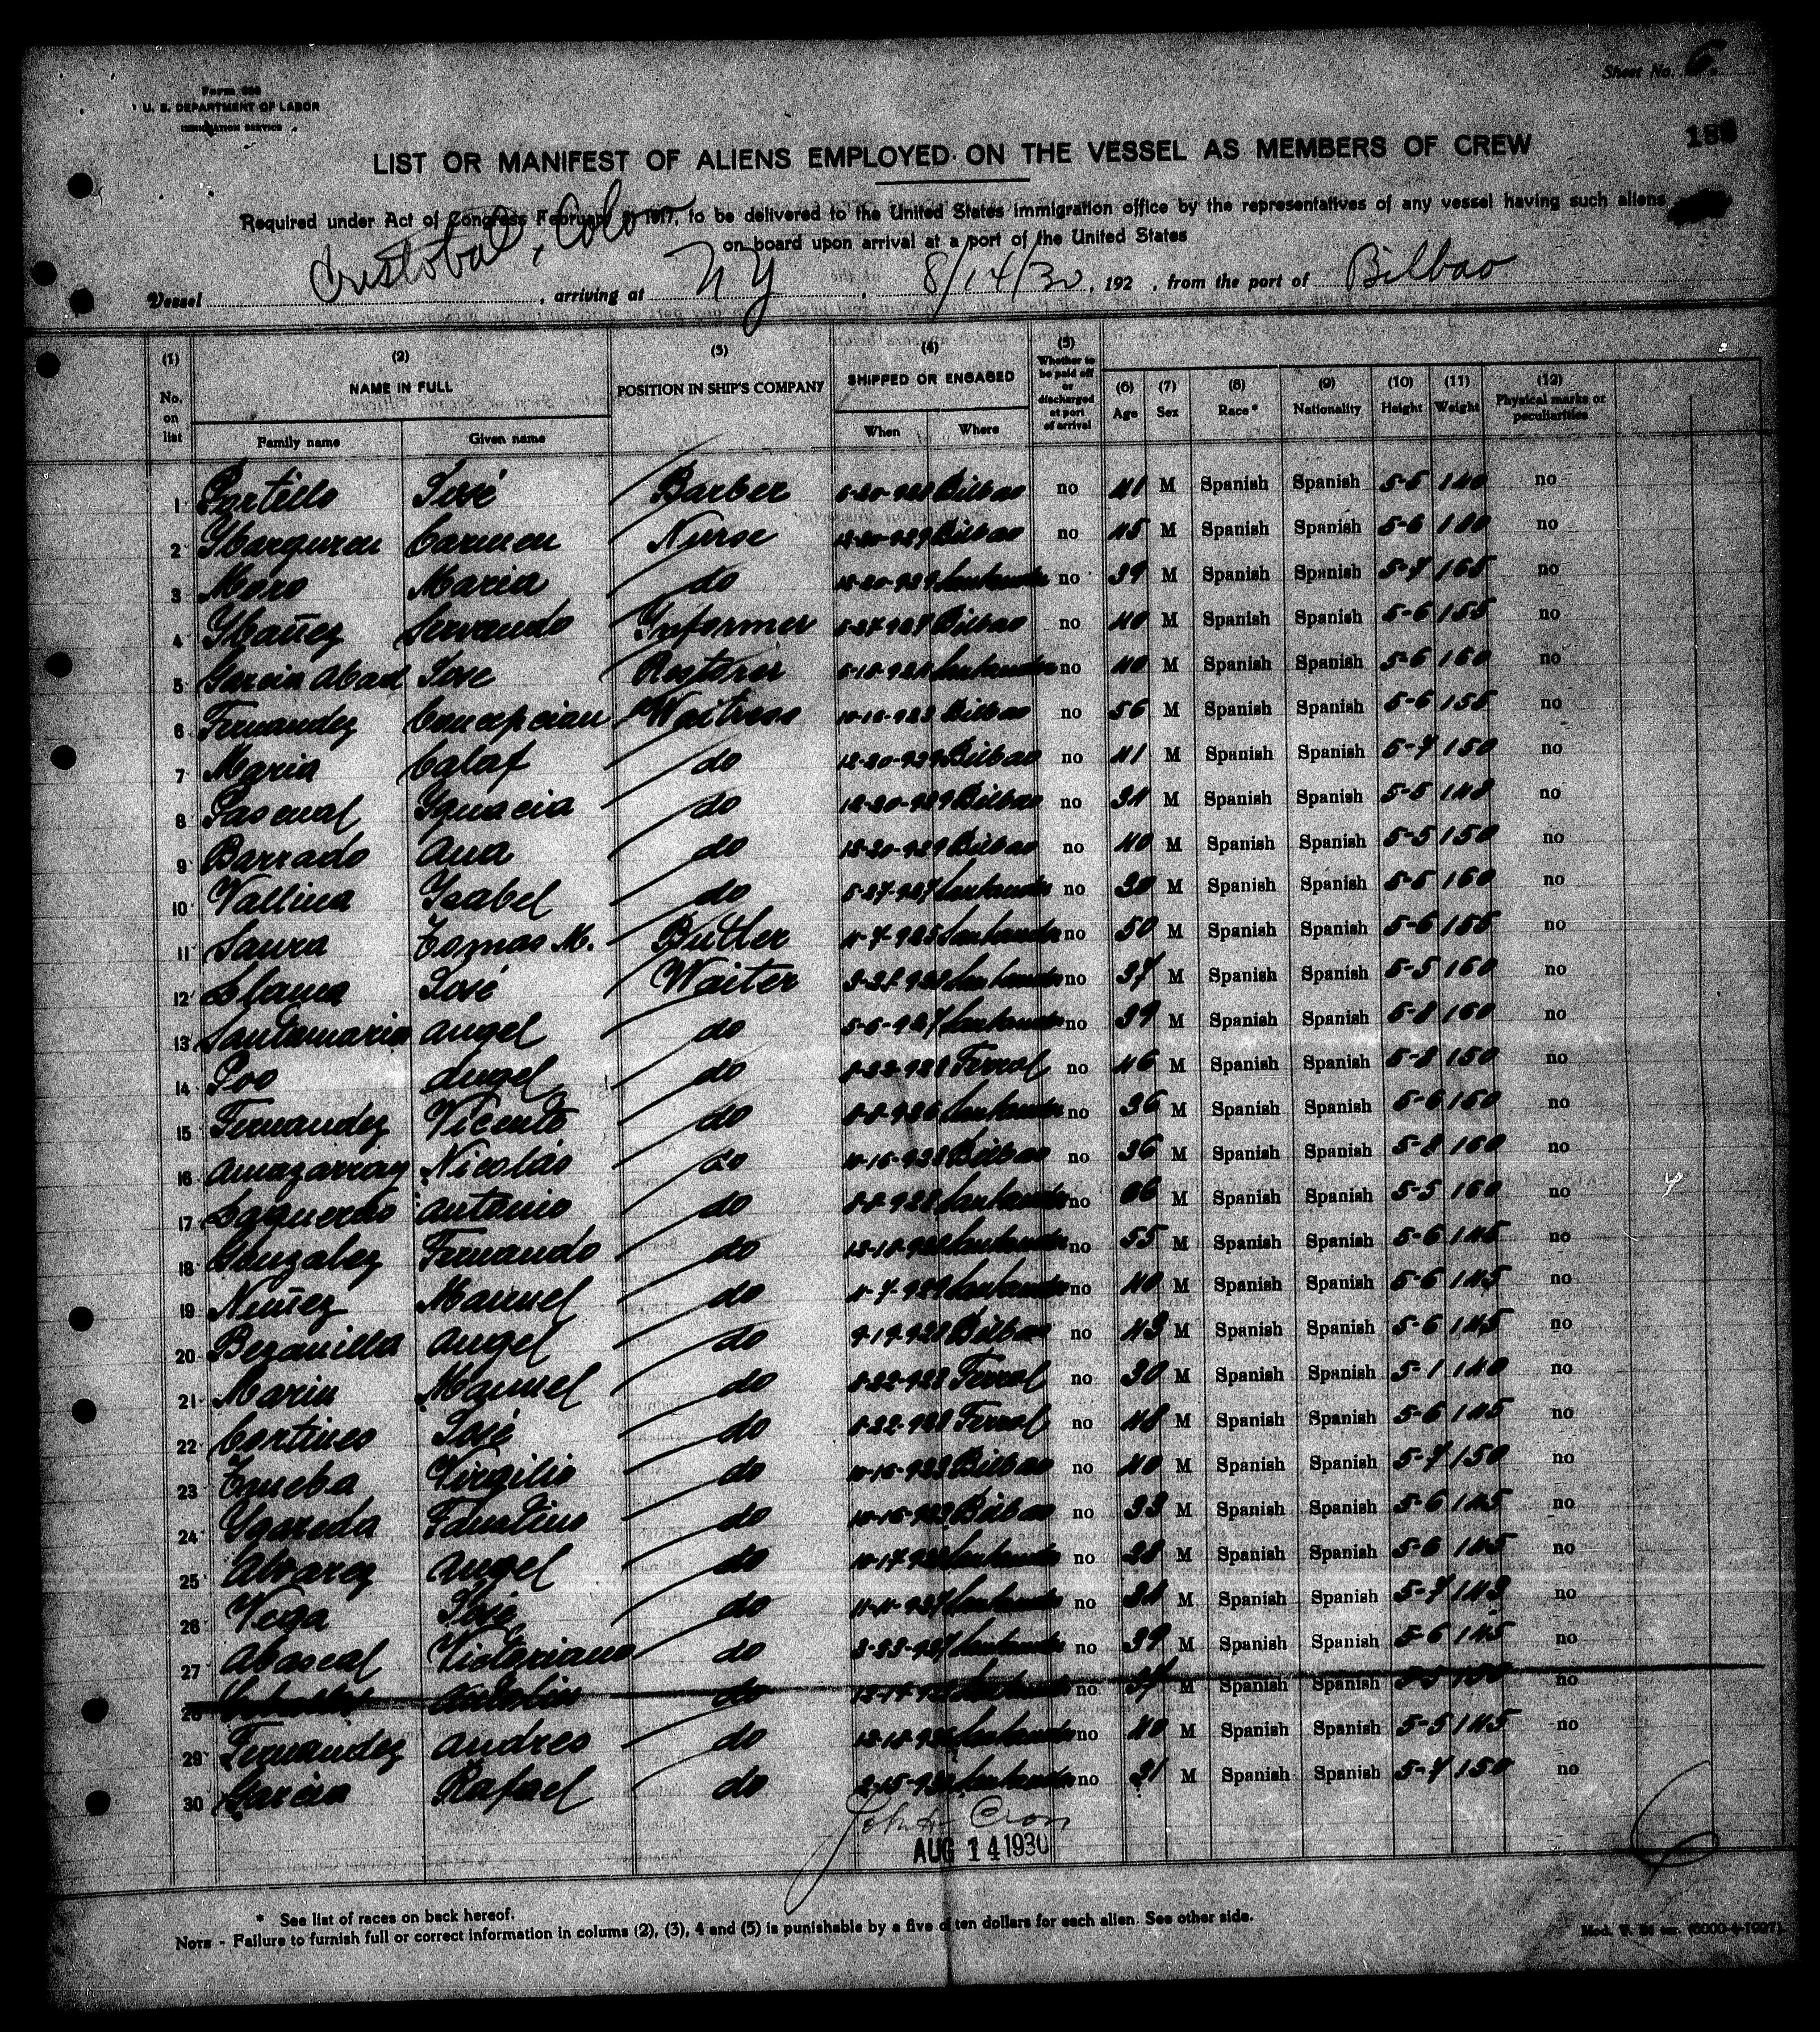 Sheet No. 6.
Form 689
U. S. DEPARTMENT OF LABOR
IMMIGRATION SERVICE
LIST OR MANIFEST OF ALIENS EMPLOYED ON THE VESSEL AS MEMBERS OF CREW
Required under Act of Congress February 1917, to be delivered to the United States immigration office by the representatives of any vessel having such aliens
on board upon arrival at a port of the United States
Vessel Cristobal, Colon, arriving at NY, 8/14/30, 192 , from the port of Bilbao
(1) (2) (3) (4) (5)
No. on list NAME IN FULL POSITION IN SHIP'S COMPANY SHIPPED OR ENGAGED Whether to be paid off or discharged at port of arrival (6) Age (7) Sex (8) Race* (9) Nationality (10) Height (11) Weight (12) Physical marks or peculiarities
Family name Given name When Where
1 Portillo José Barber Bilbao no 41 M Spanish Spanish 5-5 140 no
2 Ybarguren Carmen Nurse Bilbao no 45 M Spanish Spanish 5-6 no
3 Moro Maria do Santander no 39 M Spanish Spanish 5-7 165 no
4 Ybañez Servando Informer Bilbao no 40 M Spanish Spanish 5-6 155 no
5 Garcia Abad Jose Restorer Santander no 40 M Spanish Spanish 5-6 160 no
6 Fernandez Concepcion Waitress Bilbao no 56 M Spanish Spanish 5-6 155 no
7 Maria Calaf do 12-20-929 Bilbao no 41 M Spanish Spanish 5-7 150 no
8 Pascual Ygnacia do 12-20-929 Bilbao no 34 M Spanish Spanish 5-5 148 no
9 Barrado Ana do Bilbao no 40 M Spanish Spanish 5-5 150 no
10 Vallina Ysabel do 5-27-927 Santander no 30 M Spanish Spanish 5-5 160 no
11 Saura Tomas M. Butler Santander no 50 M Spanish Spanish 5-6 155 no
12 José Waiter Santander no 37 M Spanish Spanish 5-5 160 no
13 Santamaria Angel do 5-6-927 Santander no 39 M Spanish Spanish 5-8 160 no
14 Poo Angel do Ferrol no 46 M Spanish Spanish 5-8 150 no
15 Fernandez Vicente do Santander no 36 M Spanish Spanish 5-6 150 no
16 Amazarray Nicolás do Bilbao no 36 M Spanish Spanish 5-8 160 no
17 Antonio do Santander no M Spanish Spanish 5-5 160 no
18 Gonzalez Fernando do Santander no 55 M Spanish Spanish 5-6 145 no
19 Nuñez Manuel do Santander no 40 M Spanish Spanish 5-6 145 no
20 Bezanilla Angel do Bilbao no 43 M Spanish Spanish 5-6 145 no
21 Marin Manuel do Ferrol no 30 M Spanish Spanish 5-1 140 no
22 Cortines José do Ferrol no 48 M Spanish Spanish 5-6 145 no
23 Trueba Virgilio do Bilbao no 40 M Spanish Spanish 5-7 150 no
24 Ygareda Faustino do Bilbao no 33 M Spanish Spanish 5-6 145 no
25 Alvarez Angel do Santander no 38 M Spanish Spanish 5-6 145 no
26 Vega José do Santander no 34 M Spanish Spanish 5-7 148 no
27 Abascal Victoriano do Santander no 39 M Spanish Spanish 5-6 145 no
28 do Santander no 37 M Spanish Spanish no
29 Fernandez Andres do Santander no 40 M Spanish Spanish 5-5 145 no
30 Garcia Rafael do Santander no 31 M Spanish Spanish 5-7 150 no
AUG 14 1930
* See list of races on back hereof.
NOTE - Failure to furnish full or correct information in colums (2), (3), 4 and (5) is punishable by a five of ten dollars for each alien. See other side.